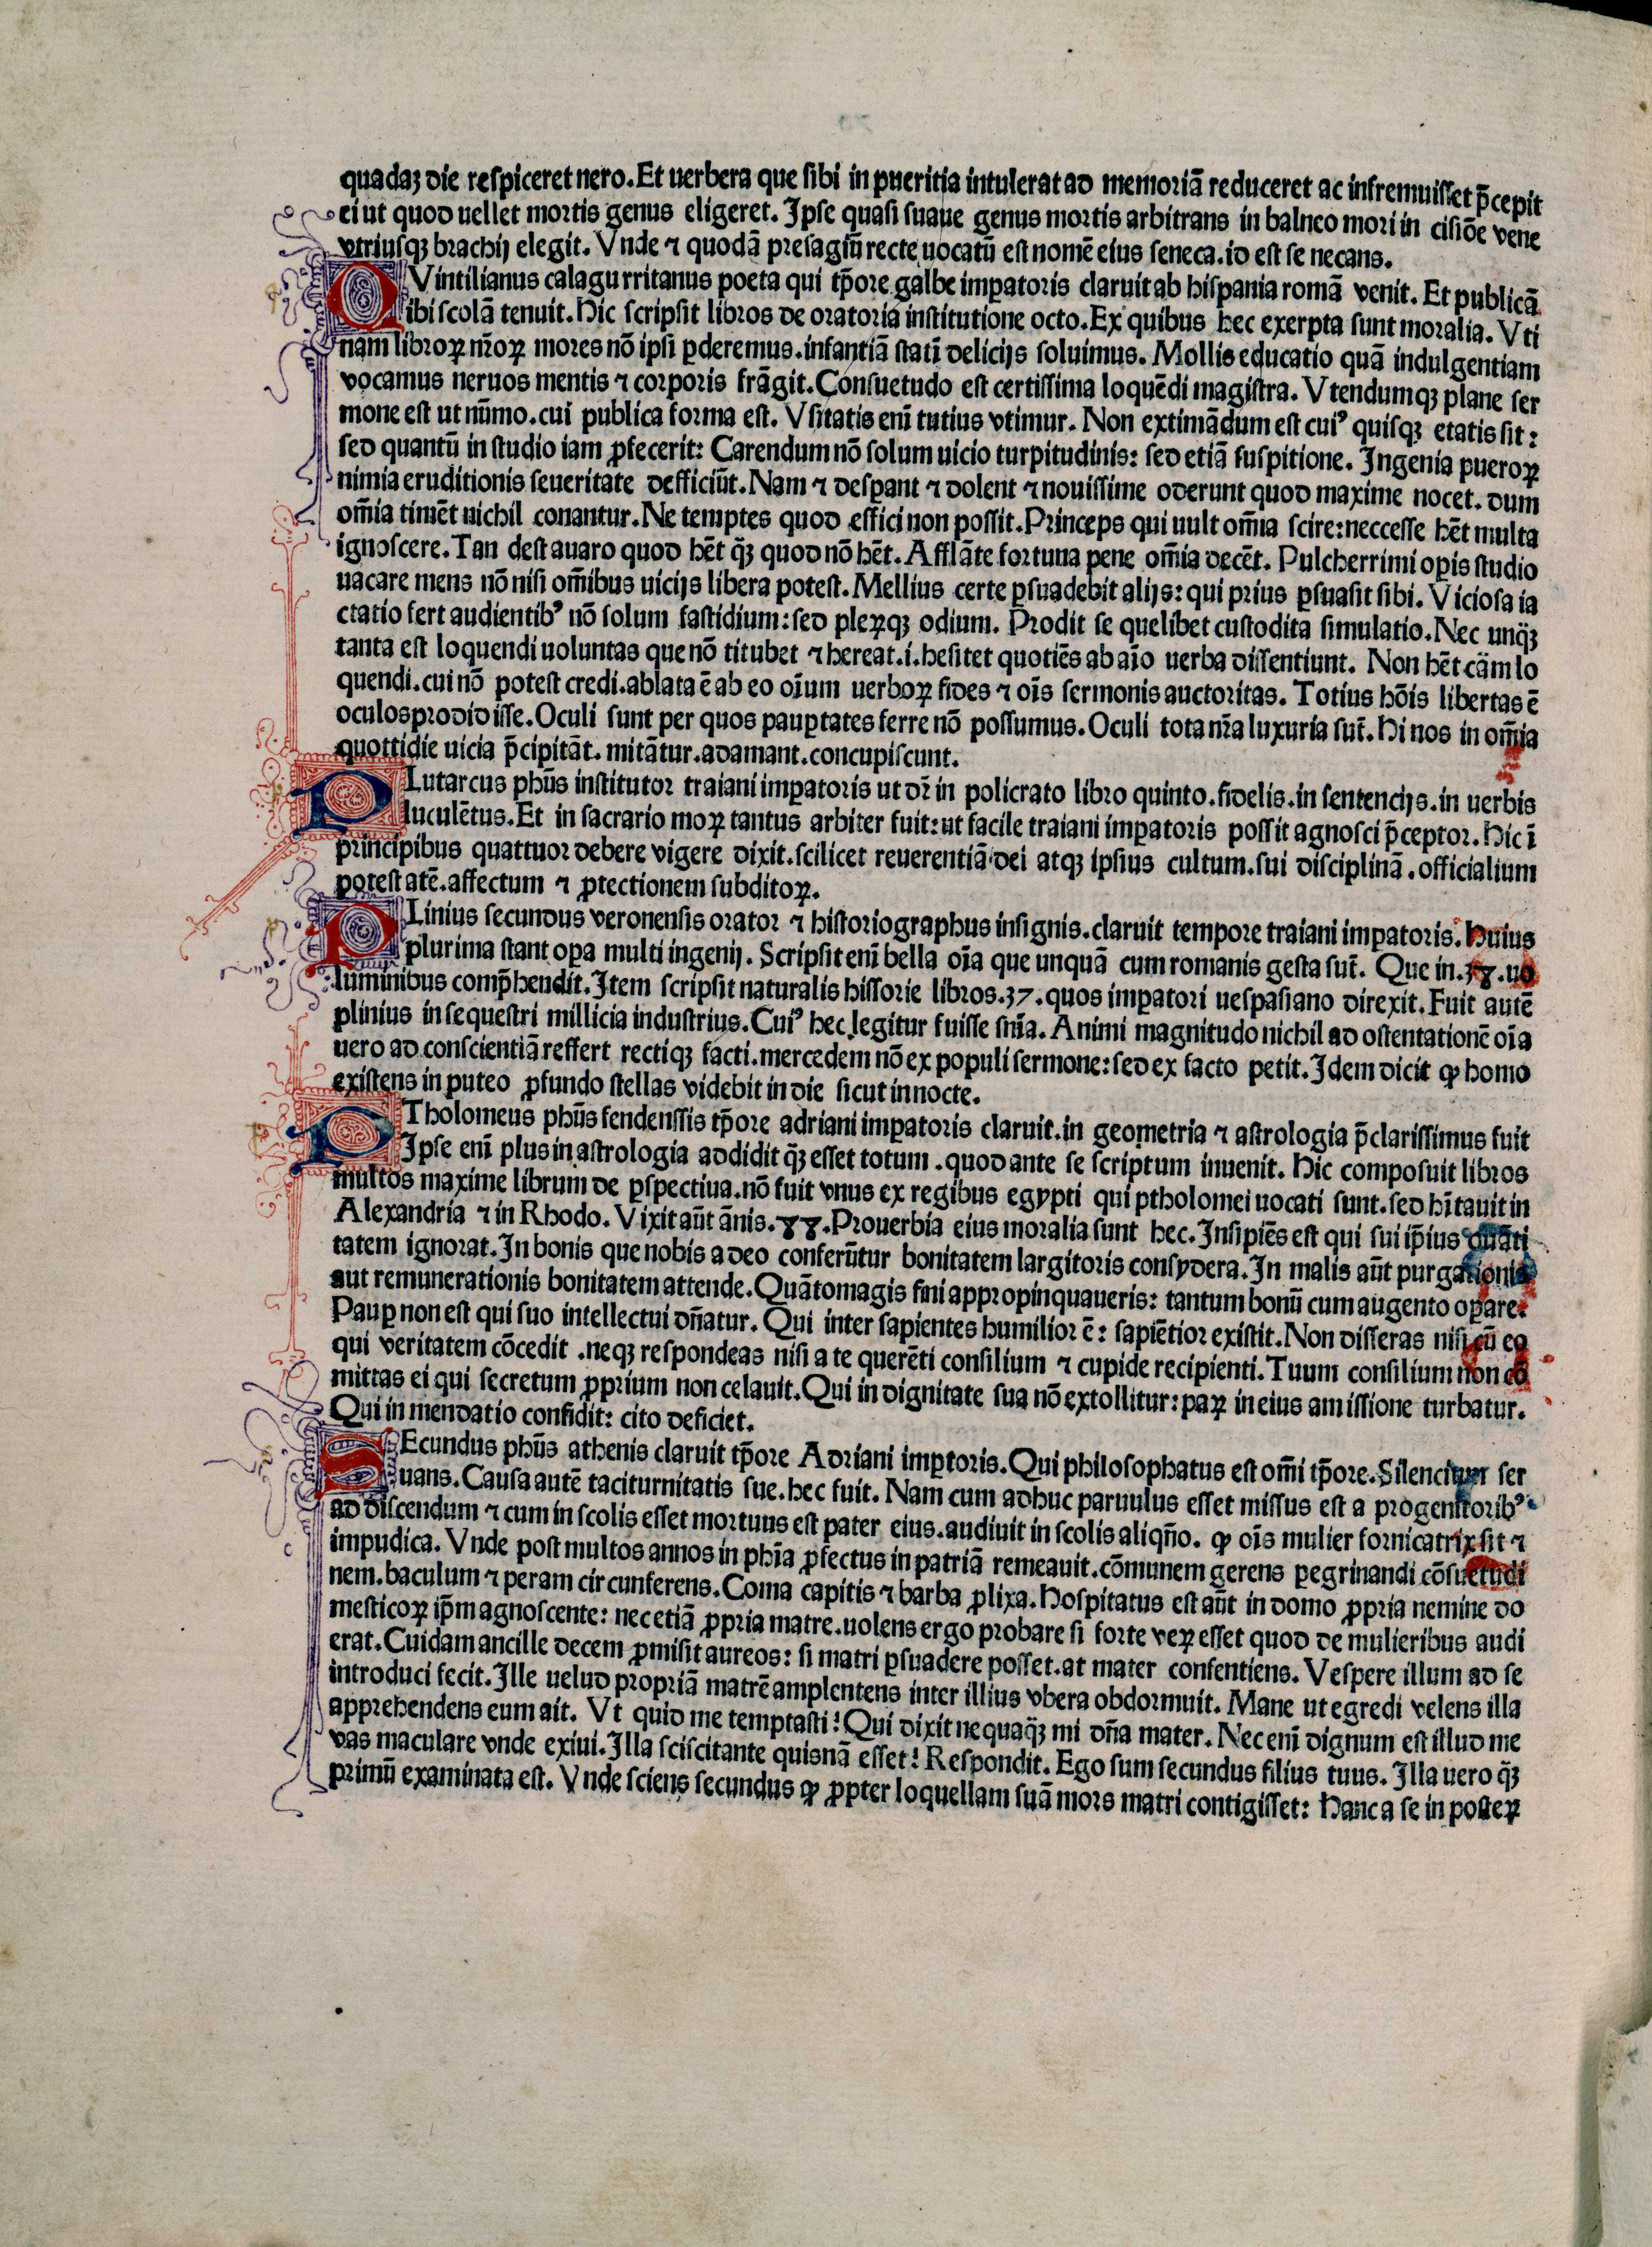 quadaꝫ die respiceret nero. Et uerbera que sibi in pueritia intulerat ad memoriā reduceret ac infremuisset p̄cepit
ei ut quod uellet mortis genus eligeret. Ipse quasi suaue genus mortis arbitrans in balneo mori in cisiōe vene
vtriusqꝫ brachij elegit. Vnde ⁊ quodā presagiū recte uocatū est nomē eius seneca. id est se necans.
QVintilianus calagurritanus poeta qui tp̄ore galbe imꝑatoris claruit ab hispania romā venit. Et publicā
ibi scolā tenuit. Hic scripsit libros de oratoria institutione octo. Ex quibus hec exerpta sunt moralia. Vti
nam libroꝝ nr̄oꝝ mores nō ipsi ꝑderemus. infantiā stati᷈ delicijs soluimus. Mollis educatio quā indulgentiam
vocamus neruos mentis ⁊ corporis frāgit. Consuetudo est certissima loquēdi magistra. Vtendumqꝫ plane ser
mone est ut nūmo. cui publica forma est. Vsitatis enī tutius vtimur. Non extimādum est cuiꝰ quisqꝫ etatis sit:
sed quantū in studio iam ꝓfecerit: Carendum nō solum uicio turpitudinis: sed etiā suspitione. Ingenia pueroꝝ
nimia eruditionis seueritate defficiūt. Nam ⁊ desꝑant ⁊ dolent ⁊ nouissime oderunt quod maxime nocet. dum
om̄ia timēt nichil conantur. Ne temptes quod effici non possit. Princeps qui uult om̄ia scire: neccesse hēt multa
ignoscere. Tan dest auaro quod hēt q̄ꝫ quod nō hēt. Afflāte fortuna pene om̄ia decēt. Pulcherrimi oꝑis studio
uacare mens nō nisi om̄ibus uicijs libera potest. Mellius certe ꝑsuadebit alijs: qui prius ꝑsuasit sibi. Viciosa ia
ctatio fert audientibꝰ nō solum fastidium: sed pleꝝqꝫ odium. Prodit se quelibet custodita simulatio. Nec unq̄ꝫ
tanta est loquendi uoluntas que nō titubet ⁊ hereat. i. hesitet quotiēs ab aīo uerba dissentiunt. Non hēt cām lo
quendi. cui nō potest credi. ablata ē ab eo oīum uerboꝝ fides ⁊ oīs sermonis auctoritas. Totius hōis libertas ē
oculos prodidisse. Oculi sunt per quos pauꝑtates ferre nō possumus. Oculi tota nr̄a luxuria sūt. Hi nos in om̄ia
quottidie uicia p̄cipitāt. mitātur. adamant. concupiscunt.
PLutarcus ph̄us institutor traiani imꝑatoris ut dr̄ in policrato libro quinto. fidelis. in sentencijs. in uerbis
luculētus. Et in sacrario moꝝ tantus arbiter fuit: ut facile traiani imꝑatoris possit agnosci p̄ceptor. Hic ī
principibus quattuor debere vigere dixit. scilicet reuerentiā dei atqꝫ ipsius cultum. sui disciplinā. officialium
potestatē. affectum ⁊ ꝓtectionem subditoꝝ.
PLinius secundus veronensis orator ⁊ historiographus insignis. claruit tempore traiani imꝑatoris. Huius
plurima stant oꝑa multi ingenij. Scripsit enī bella oīa que unquā cum romanis gesta sūt. Que in. 38. uo
luminibus comp̄hendit. Item scripsit naturalis hissorie libros. 37. quos imꝑatori uespasiano direxit. Fuit autē
plinius in sequestri millicia industrius. Cuiꝰ hec legitur fuisse snīa. Animi magnitudo nichil ad ostentationē oīa
uero ad conscientiā reffert rectiqꝫ facti. mercedem nō ex populi sermone: sed ex facto petit. Idem dicit ꝙ homo
existens in puteo ꝓfundo stellas videbit in die sicut in nocte.
PTholomeus ph̄us fendenssis tp̄ore adriani imꝑatoris claruit. in geometria ⁊ astrologia p̄clarissimus fuit
Ipse enī plus in astrologia addidit q̄ꝫ esset totum. quod ante se scriptum inuenit. Hic composuit libros
multos maxime librum de ꝑspectiua. nō fuit vnus ex regibus egypti qui ptholomei uocati sunt. sed hītauit in
Alexandria ⁊ in Rhodo. Vixit aūt ānis. 88. Prouerbia eius moralia sunt hec. Insipiēs est qui sui ip̄ius quāti
tatem ignorat. In bonis que nobis a deo conferūtur bonitatem largitoris consydera. In malis aūt purgationis
aut remunerationis bonitatem attende. Quātomagis fini appropinquaueris: tantum bonū cum augento oꝑare.
Pauꝑ non est qui suo intellectui dn̄atur. Qui inter sapientes humilior ē: sapiētior existit. Non disseras nisi cū eo
qui veritatem cōcedit. neqꝫ respondeas nisi a te querēti consilium ⁊ cupide recipienti. Tuum consilium non cō
mittas ei qui secretum ꝓprium non celauit. Qui in dignitate sua nō extollitur: paꝝ in eius amissione turbatur.
Qui in mendatio confidit: cito deficiet.
SEcundus ph̄us athenis claruit tp̄ore Adriani imꝑtoris. Qui philosophatus est om̄i tp̄ore. Silencium ser
uans. Causa autē taciturnitatis sue. hec fuit. Nam cum adhuc paruulus esset missus est a progenitoribꝰ
ad discendum ⁊ cum in scolis esset mortuus est pater eius. audiuit in scolis aliqn̄o. ꝙ oīs mulier fornicatrix sit ⁊
impudica. Vnde post multos annos in ph̄ia ꝓfectus in patriā remeauit. cōmunem gerens ꝑegrinandi cōsuetudi
nem. baculum ⁊ peram circunferens. Coma capitis ⁊ barba ꝓlixa. Hospitatus est aūt in domo ꝓpria nemine do
mesticoꝝ ip̄m agnoscente: nec etiā ꝓpria matre. uolens ergo probare si forte veꝝ esset quod de mulieribus audi
erat. Cuidam ancille decem ꝓmisit aureos: si matri ꝑsuadere posset. at mater consentiens. Vespere illum ad se
introduci fecit. Ille uelud propriā matrē amplentens inter illius vbera obdormuit. Mane ut egredi velens illa
apprehendens eum ait. Vt quid me temptasti? Qui dixit nequaq̄ꝫ mi dn̄a mater. Nec enī dignum est illud me
vas maculare vnde exiui. Illa sciscitante quisnā esset? Respondit. Ego sum secundus filius tuus. Illa uero q̄ꝫ
primū examinata est. Vnde sciens secundus ꝙ ꝓpter loquellam suā mors matri contigisset: Hanc a se in posteꝝ